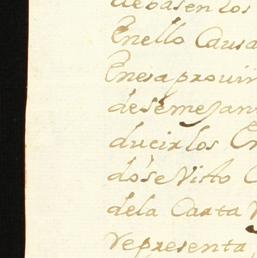 debasen los
Enello Causa
Enesa provin
desemejan
ducirlos En
dose Visto C
dela Carta V
representa,